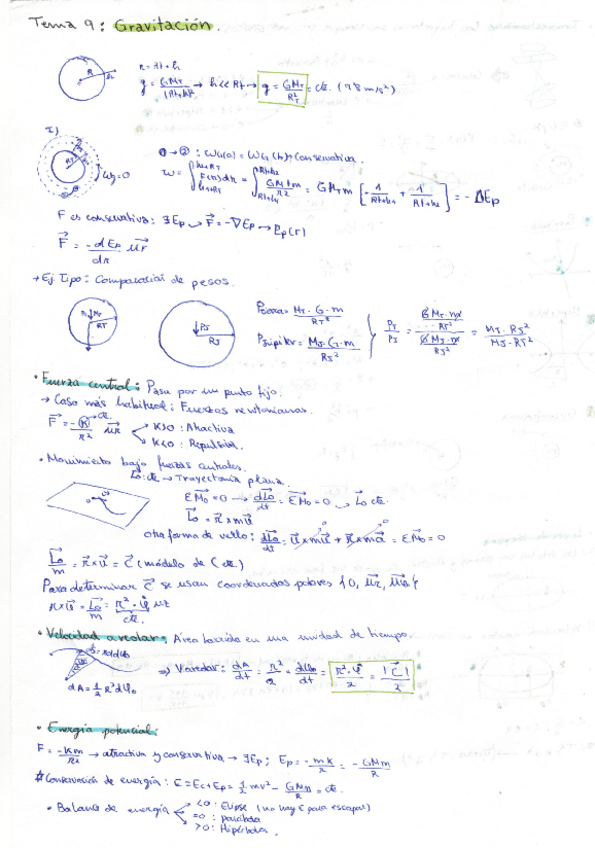 Tema 9: Gravitación.
R
h
r = Rt + h
g = GMT/(Rt+h)² → h << Rt → g = GMT/RT² = cte. (9'8 m/s²)
① → ②: WG(a) = WG(b) → Conservativa.
W = ∫ F(r)dr = ∫ GMtm/r² = GMTm [-1/(Rt+h1) + 1/(Rt+h2)] = -ΔEp
F es conservativa: ∃Ep → F = -∇Ep → Ep(r)
F = -dEp/dr ur
→ Ej Tipo: Comparación de pesos.
RT
PJ
RJ
PTierra = MT·G·m/RT²
PJúpiter = MJ·G·m/RJ²
PT/PJ = (GMT·m/RT²)/(GMJ·m/RJ²) = MT·RJ²/MJ·RT²
• Fuerza central: Pasa por un punto fijo.
→ Caso más habitual: Fuerzas newtonianas.
F = -K/r² ur
cte.
K>0: Atractiva
K<0: Repulsiva.
• Movimiento bajo fuerzas centrales.
Lo: cte → Trayectoria plana.
ΣMo = 0 → dLo/dt = ΣMo = 0 → Lo cte.
Lo = r x mv
otra forma de verlo: dLo/dt = v x mv + r x ma = ΣMo = 0
Lo/m = r x v = C (módulo de C cte)
Para determinar C se usan coordenadas polares {0, ur, uθ}
r x v = Lo/m = r²·φ uz
cte.
• Velocidad areolar: Área barrida en una unidad de tiempo.
dA = 1/2 r²dφ
⇒ Vareolar: dA/dt = r²/2 · dφ/dt = r²·φ/2 = |C|/2
• Energía potencial:
F = -Km/r² → atractiva y conservativa → ∃Ep; Ep = -mk/r = -GMm/R
# Conservación de energía: E = Ec+Ep = 1/2 mv² - GMm/R = cte.
• Balance de energía
<0: Elipse (no hay E para escapar)
=0: parábola
>0: Hipérbola.